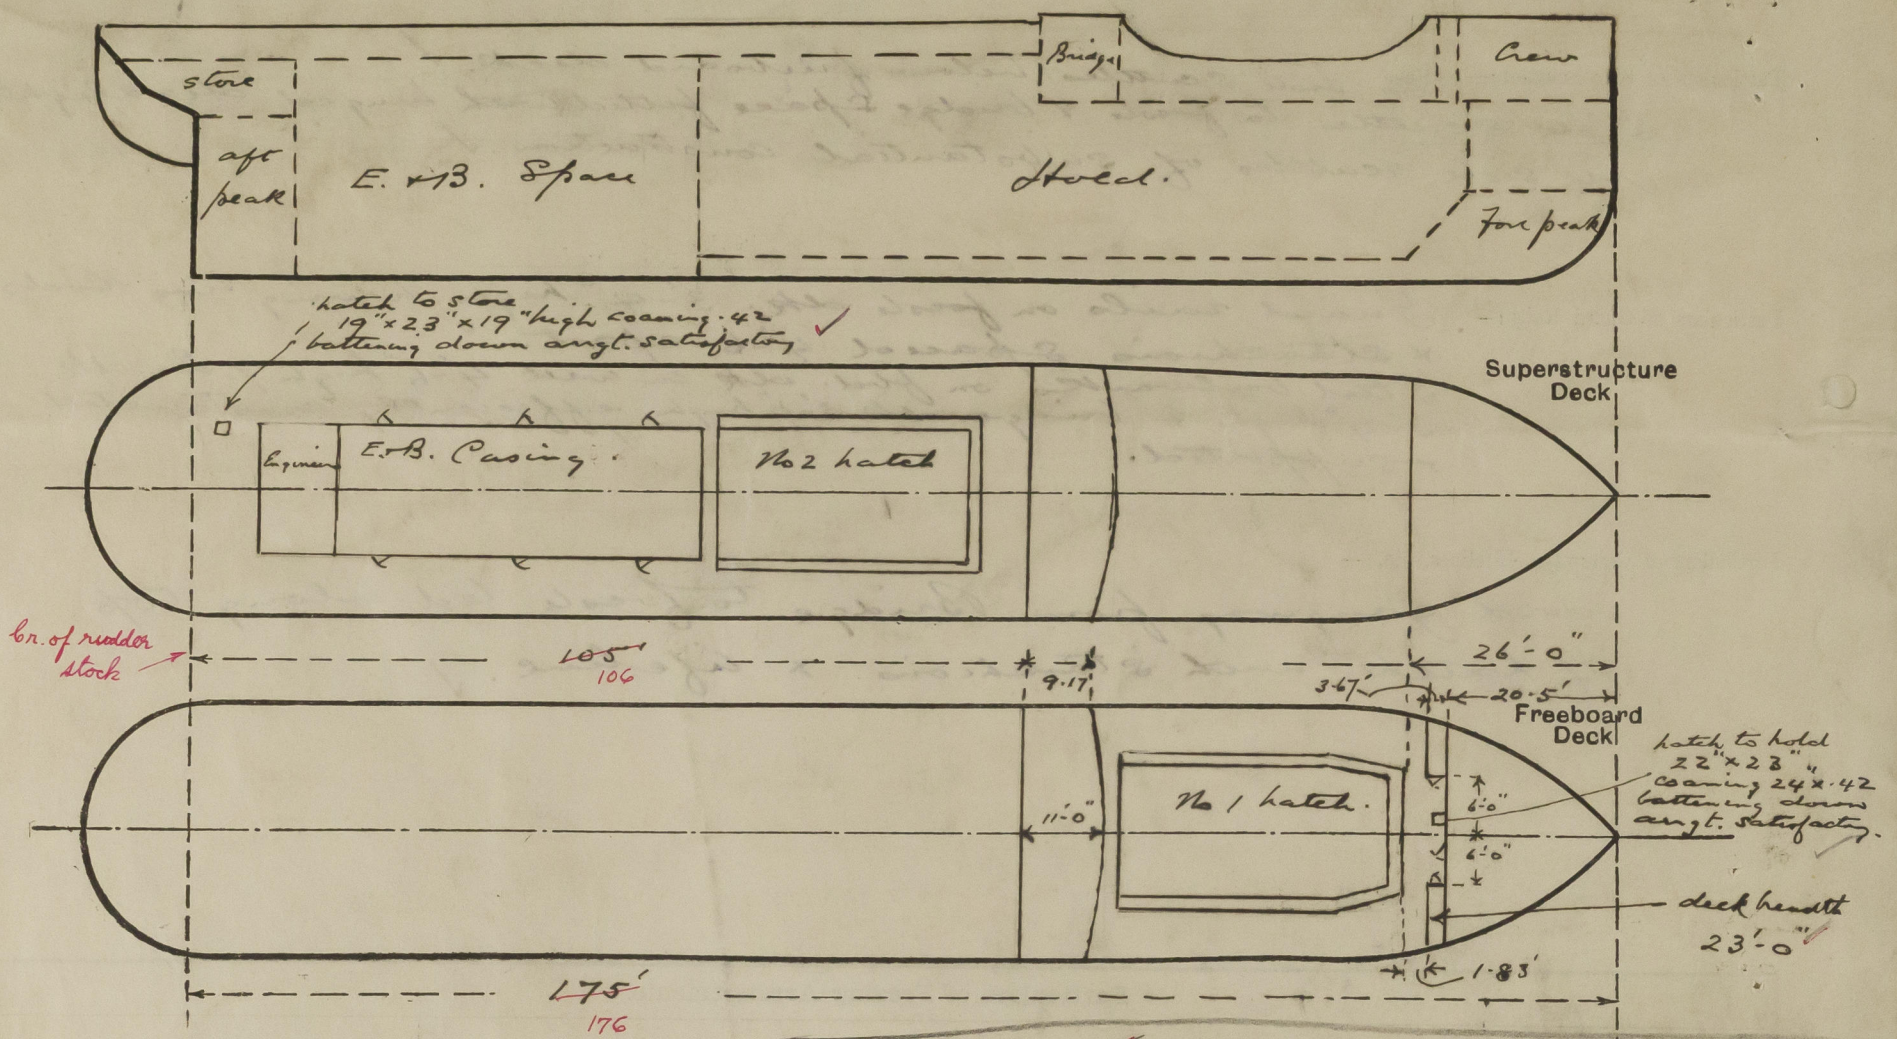 store
Bridge
Crew
aft
peak
E. & B. Space
Hold.
Fore peak
hatch to store
19" x 23" x 19" high coaming .42
battening down arrgt. satisfactory
Superstructure
Deck
Engineer
E. & B. Casing.
No 2 hatch
Cn. of rudder
stock
105'
106
9.17'
26'-0"
3.67'
20.5'
Freeboard
Deck
hatch to hold
22" x 23"
coaming 24" x .42
battening down
arrgt. satisfactory.
No 1 hatch.
11'-0"
6'-0"
6'-0"
deck breadth
23'-0"
1.83'
175'
176